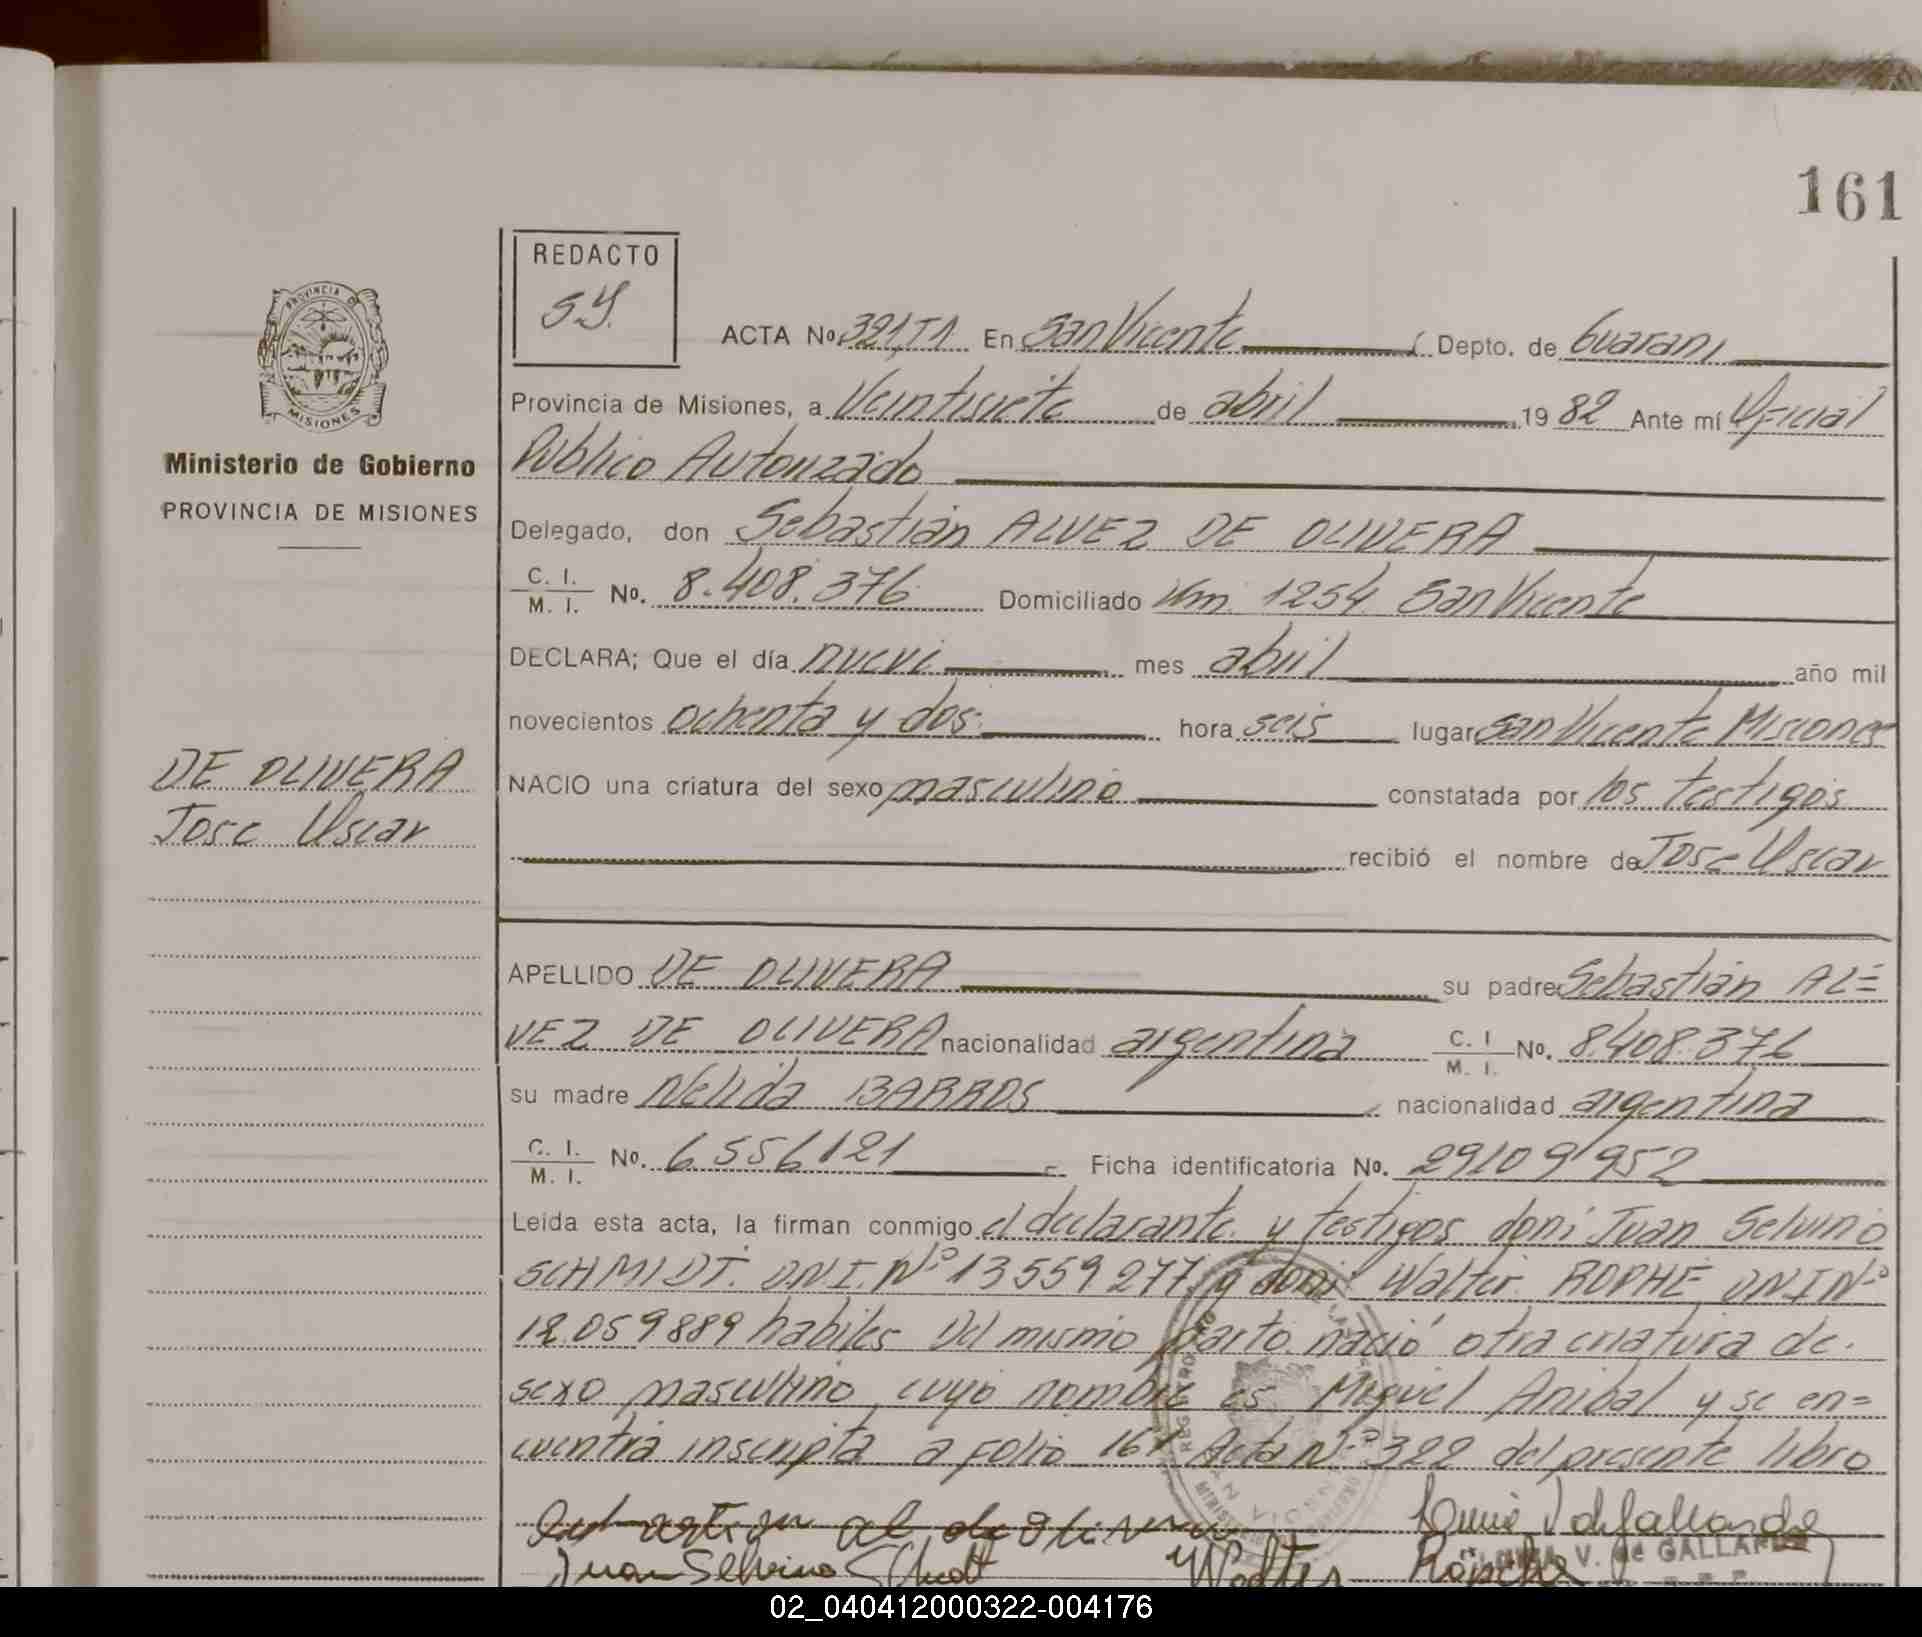 161
REDACTO
S.Y.
PROVINCIA DE
MISIONES
Ministerio de Gobierno
PROVINCIA DE MISIONES
ACTA No 321,T1 En San Vicente Depto. de Guaraní
Provincia de Misiones, a Veintisiete de abril 19 82 Ante mí Oficial
Público Autorizado
Delegado, don Sebastián ALVEZ DE OLIVERA
C. I. / M. I. No. 8.408.376 Domiciliado Km. 1254 San Vicente
DECLARA; Que el día nueve mes abril año mil
novecientos ochenta y dos hora seis lugar San Vicente Misiones
NACIO una criatura del sexo masculino constatada por los testigos
recibió el nombre de Jose Oscar
DE OLIVERA
Jose Oscar
APELLIDO DE OLIVERA su padre Sebastián AL=
VEZ DE OLIVERA nacionalidad argentina C. I / M. I. No. 8.408.376
su madre Nélida BARROS nacionalidad argentina
C. I. / M. I. No. 6556121 Ficha identificatoria No. 29109952
Leída esta acta, la firman conmigo el declarante y testigos don: Juan Selvino
SCHMIDT. D.N.I. Nº 13559277 y don: Walter ROPHE DNI Nº
12.059889 habiles Del mismo parto nació otra criatura de
sexo masculino, cuyo nombre es Miguel Anibal y se en=
cuentra inscripta a folio 161 Acta Nº 322 del presente libro
Juan Selvino
Walter
V. de GALLARDO
02_040412000322-004176